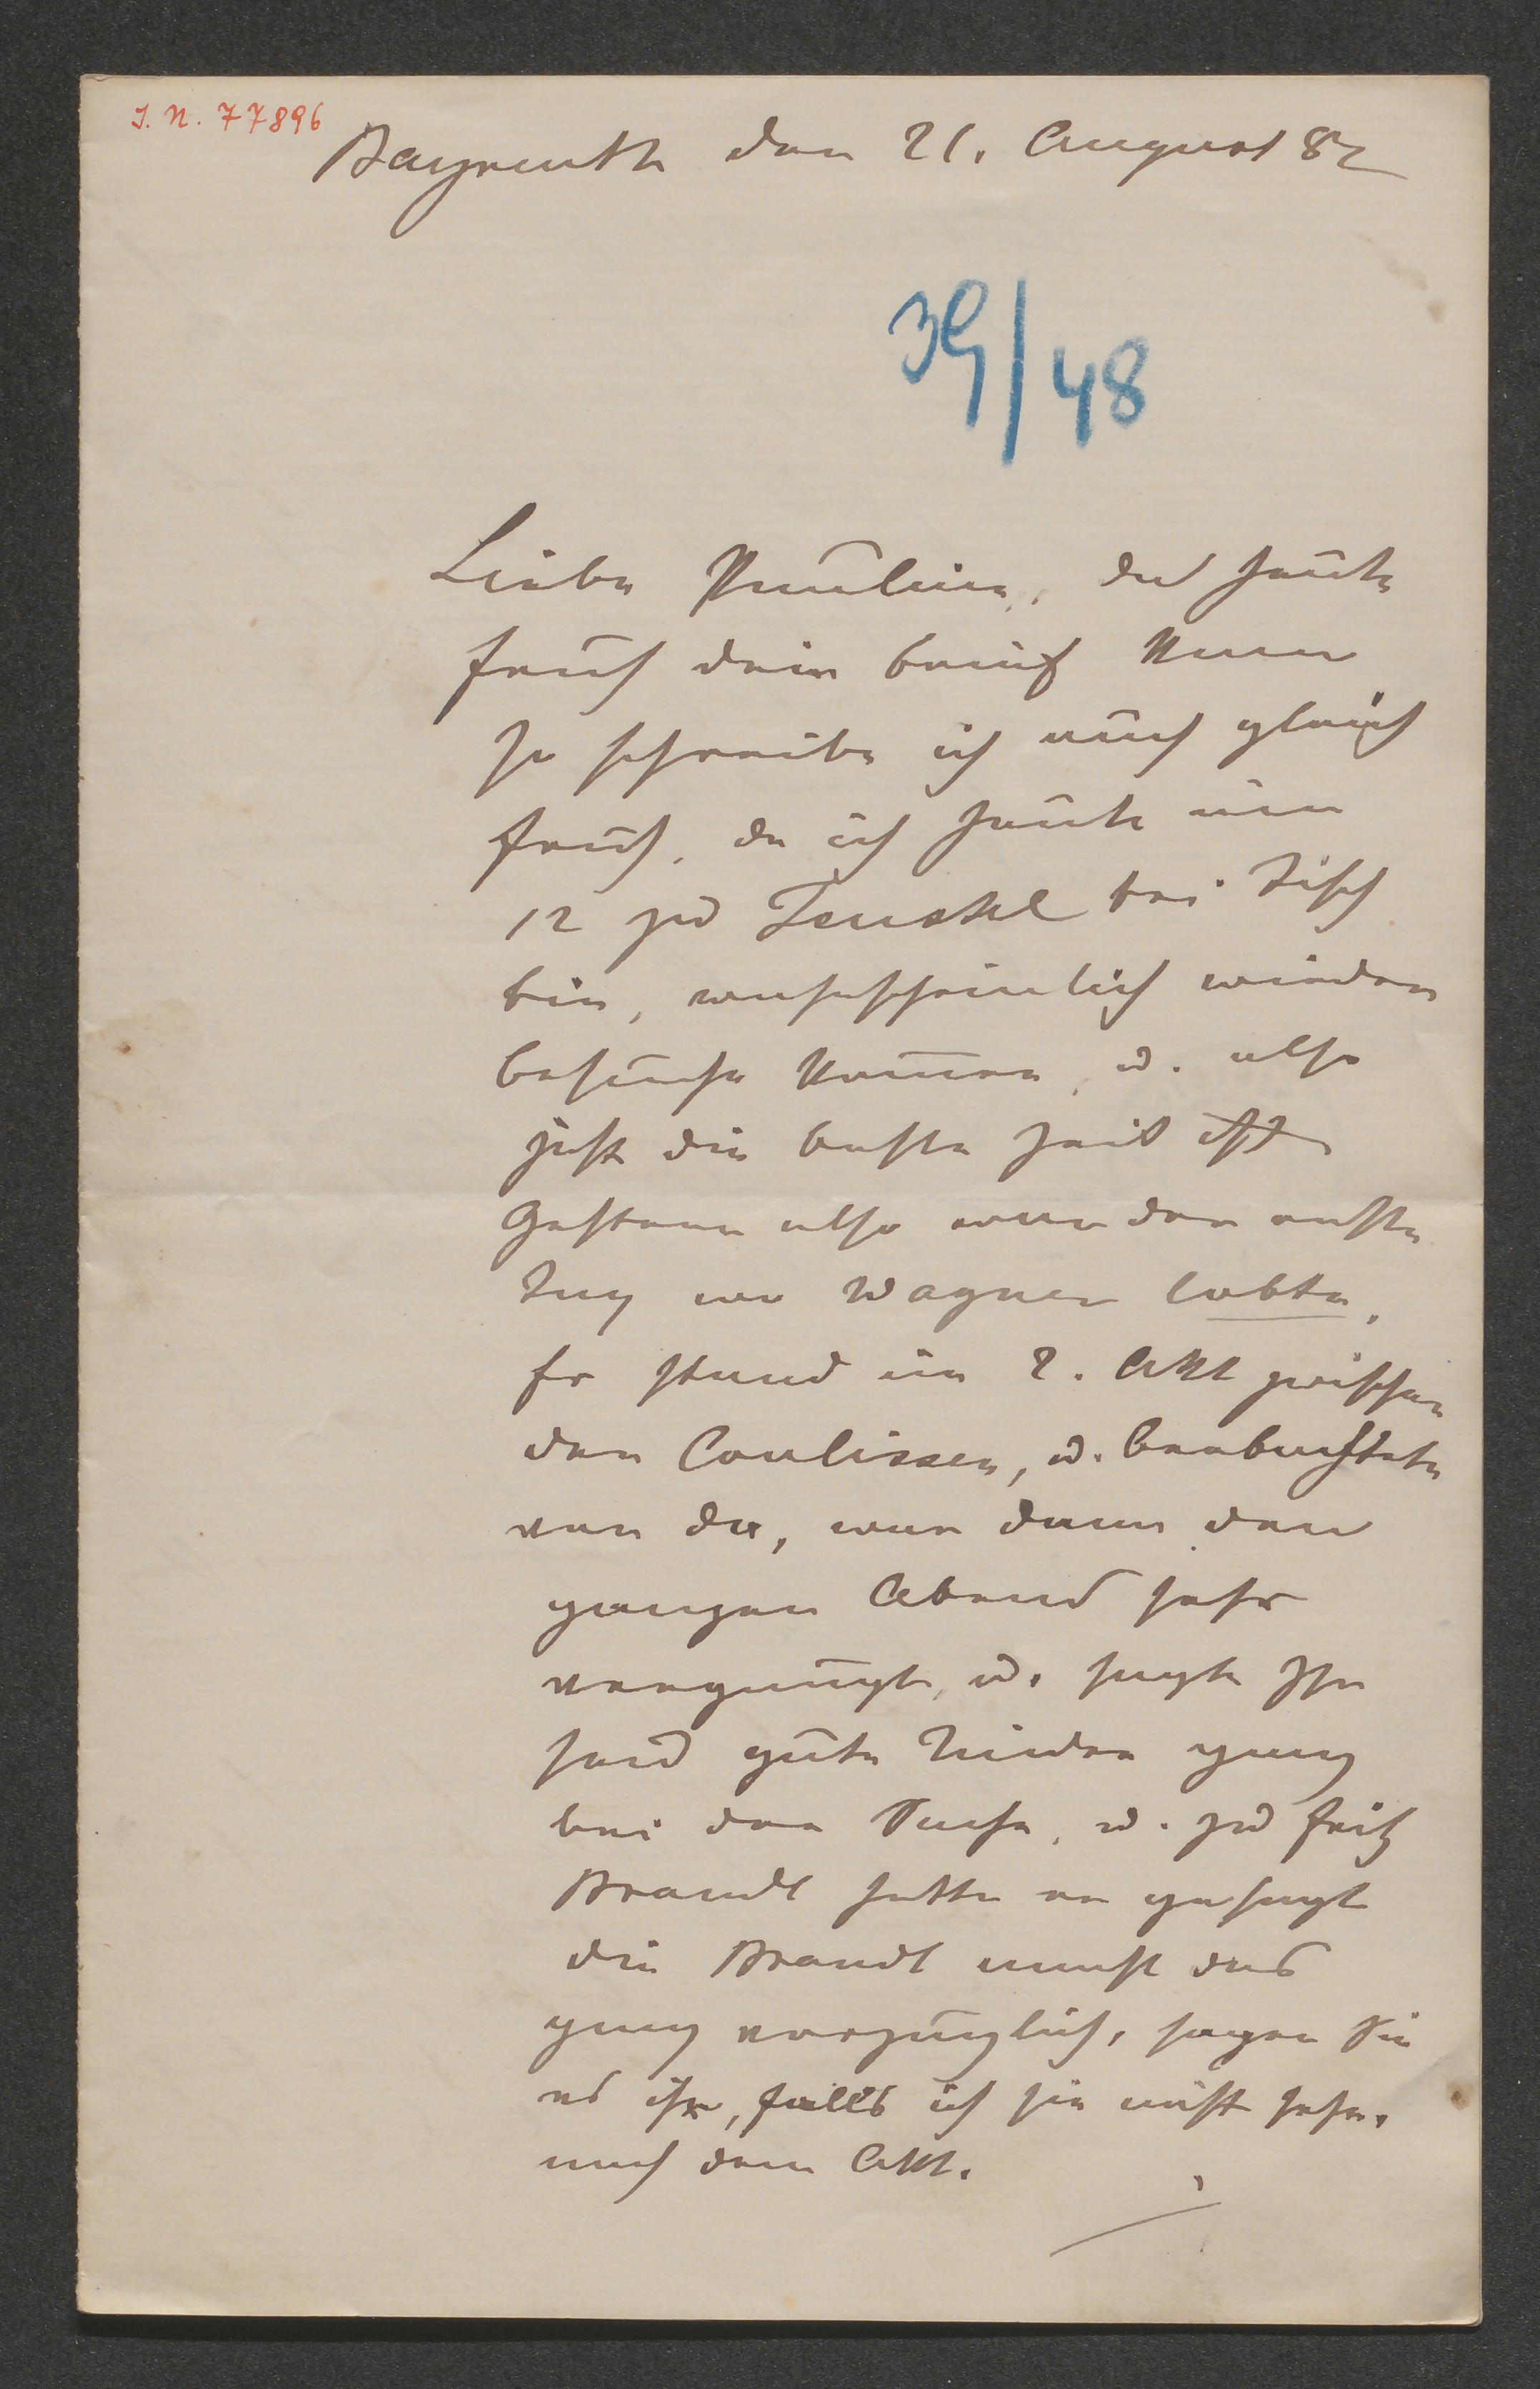 J. N. 77896
Bayreuth den 21. August 82
39/48
Liebe Pauline, da heute
früh dein Brief kam
so schreibe ich auch gleich
früh, da ich heute um
12 zu bei Tisch
bin, wahrscheinlich wieder
Besuche kommen, u. also
jetzt die beste Zeit ist
Gestern also war der erste
Tag wo Wagner lobte,
Er stand im 2. Akt zwischen
den Coulissen, u. beobachtete
von da, war dann den
ganzen Abend sehr
vergnügt, u. sagte Ihr
seid gute Kinder ganz
bei der Sache, u. zu Fritz
Brandt hatte er gesagt
die Brandt macht das
ganz vorzüglich, sagen Sie
es ihr, falls ich sie nicht sehe,
nach dem Akt.